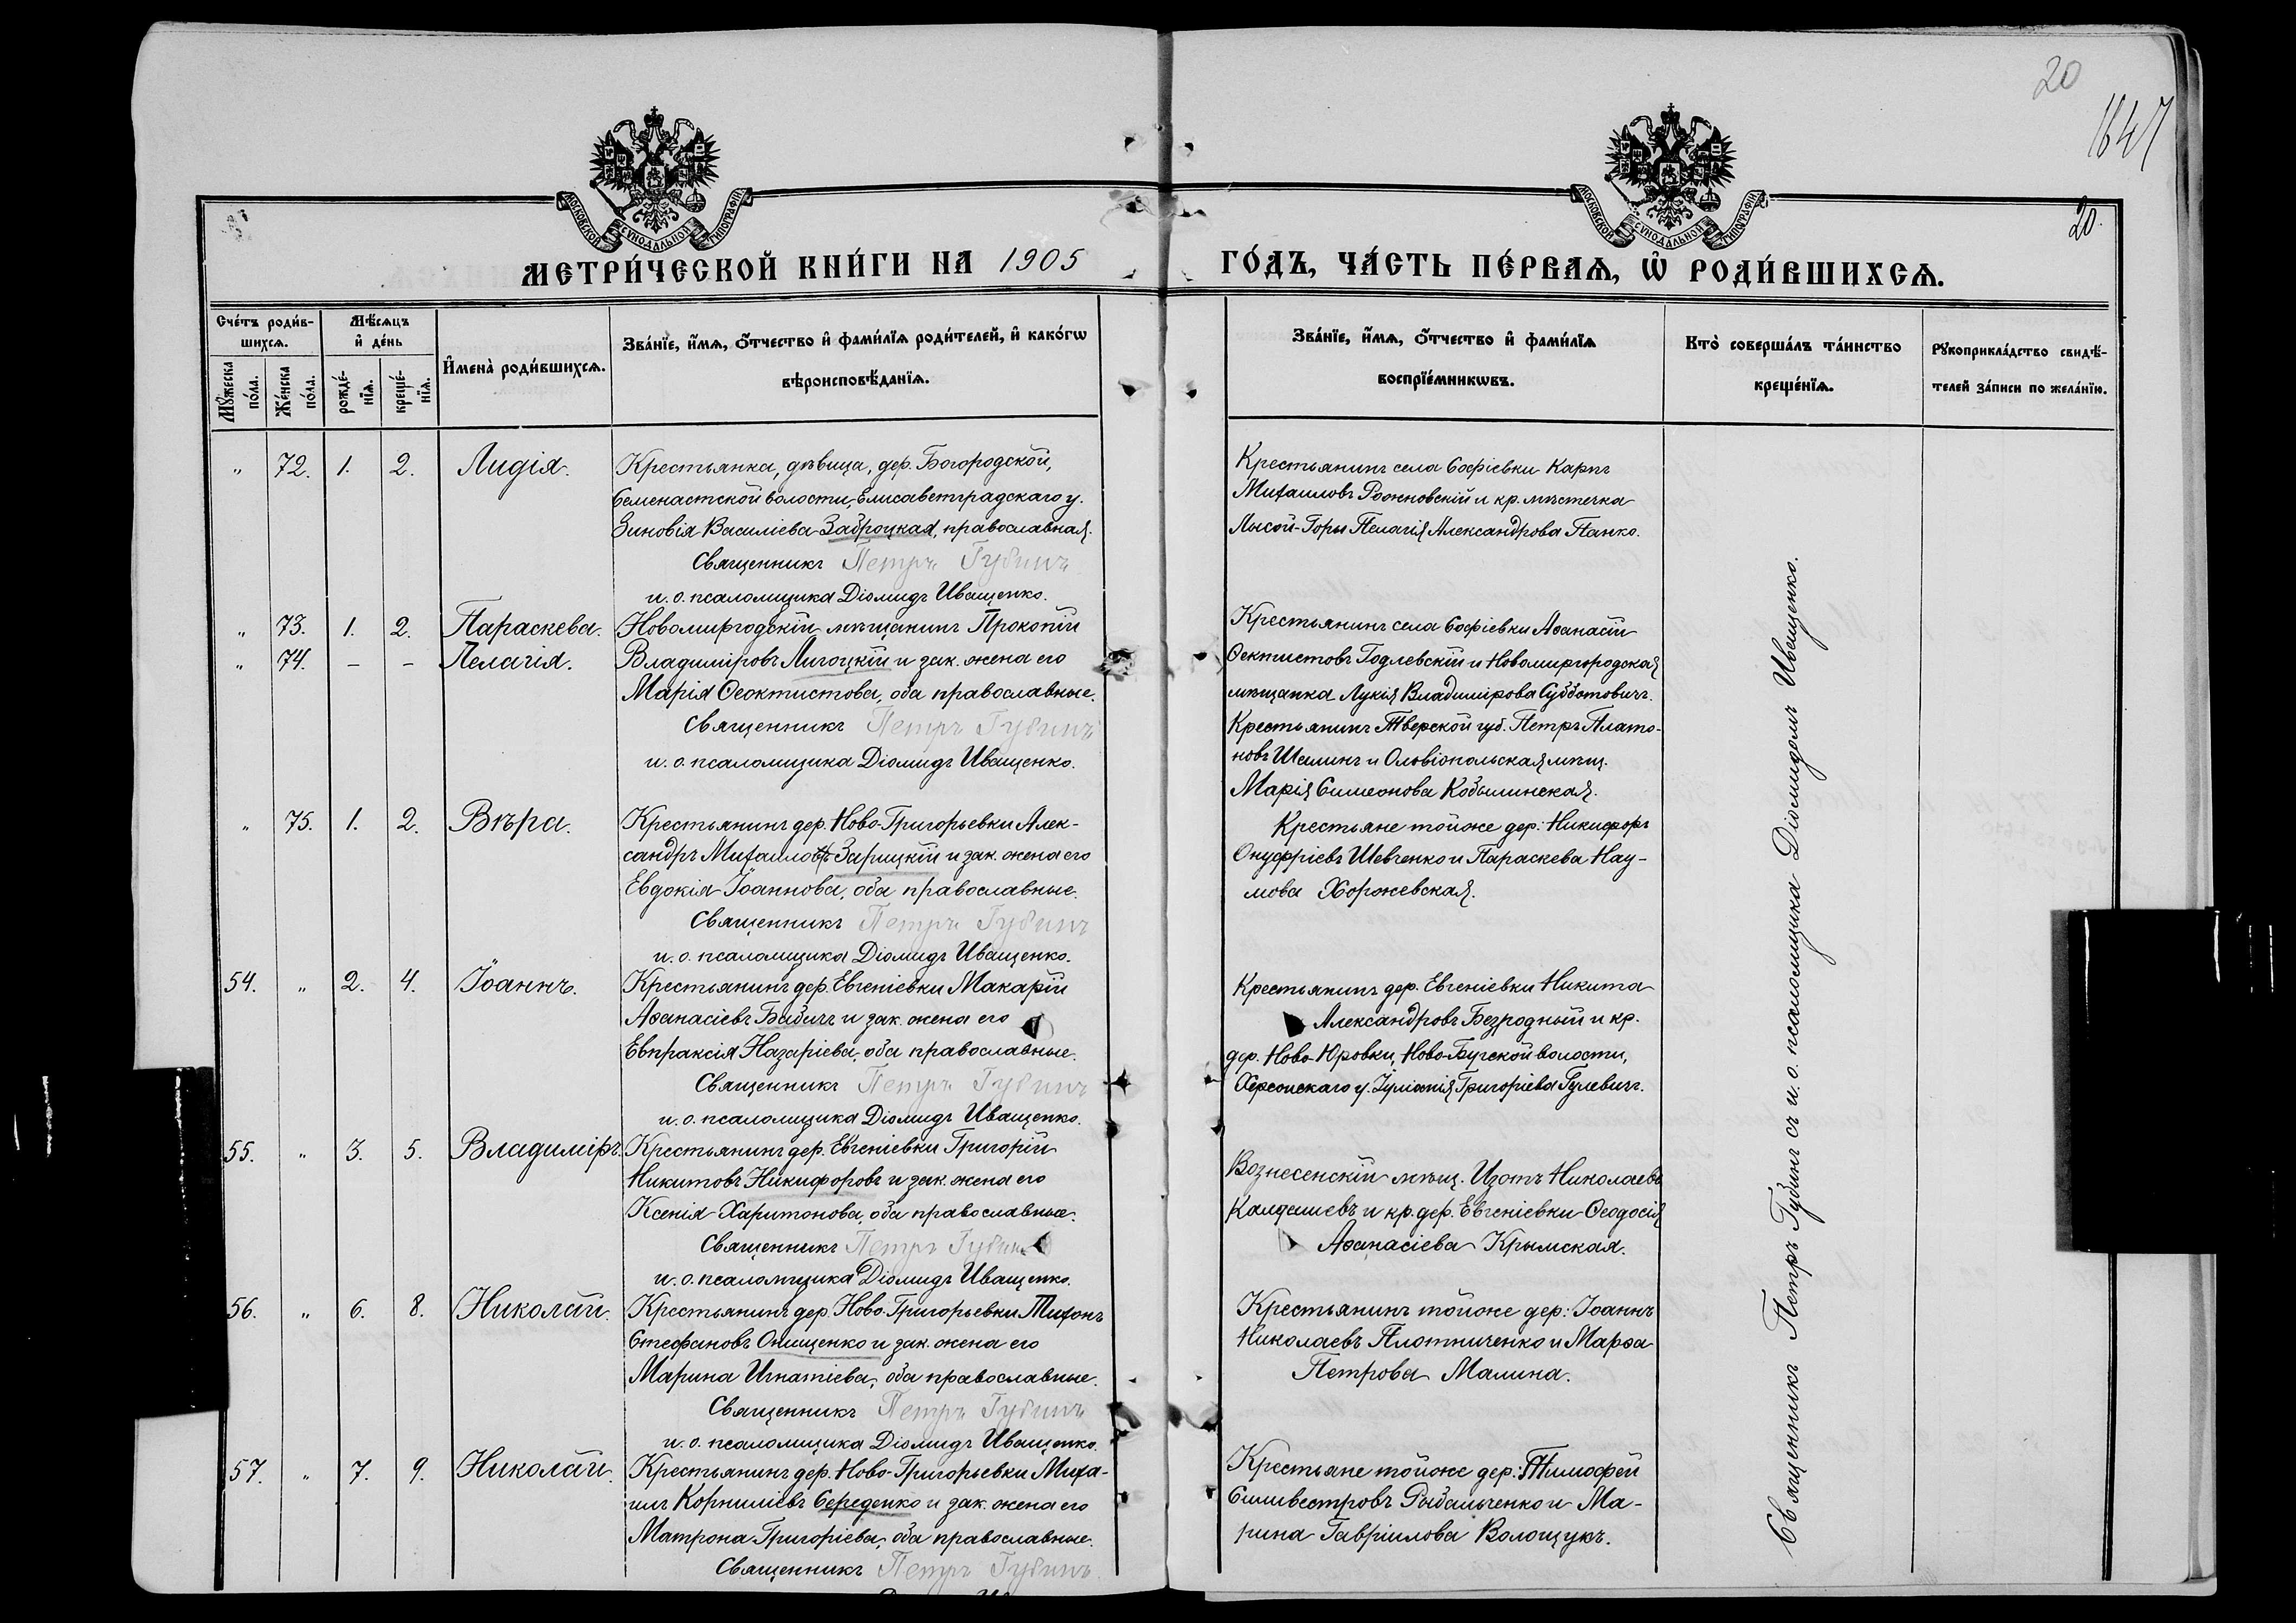 20
1647
20.
МОСКОВСКОЙ СУНОДАЛЬНОЙ ТИПОГРАФІИ
МОСКОВСКОЙ СУНОДАЛЬНОЙ ТИПОГРАФІИ
МЕТРИ́ЧЕСКОЙ КНИ́ГИ НА 1905
ГО́ДЪ, ЧА́СТЬ ПЕ́РВАѦ, Ѡ҆ РОДИ́ВШИХСѦ.
Сче́тъ роди́в-
шихсѧ.
Мѣ́сѧцъ
и҆ де́нь
Мꙋ́жеска по́ла.
Же́нска по́ла.
рожде́-
нїѧ.
креще́-
нїѧ.
И҆мена̀ роди́вшихсѧ.
Зва́нїе, и҆́мѧ, ѻ҆́тчество и҆ фами́лїѧ роди́телей, и҆ како́гѡ
вѣроисповѣ́данїѧ.
Зва́нїе, и҆́мѧ, ѻ҆́тчество и҆ фами́лїѧ
воспрїе́мникѡвъ.
Кто̀ соверша́лъ та́инство
креще́нїѧ.
Рꙋкоприкла́дство свидѣ́-
телей за́писи по жела́нїю.
„ 72. 1. 2. Лидія.
Крестьянка, дѣвица, дер. Богородской,
Семенастской волости, Елисаветградскаго у.
Зиновія Василіева Заброцкая, православная.
Священникъ Петръ Губинъ
и. о. псаломщика Діомидъ Иващенко.
Крестьянинъ села Софіевки Карпъ
Михаиловъ Рожновскій и кр. мѣстечка
Лысой-Горы Пелагія Александрова Панко.
„ 73. 1. 2. Параскева.
„ 74. – – Пелагія.
Новомиргодскій мѣщанинъ Прокопій
Владиміровъ Лигоцкій и зак. жена его
Марія Ѳеоктистова, оба православные.
Священникъ Петръ Губинъ
и. о. псаломщика Діомидъ Иващенко.
Крестьянинъ села Софіевки Аѳанасій
Ѳектистовъ Годлевскій и Новомиргородская
мѣщанка Лукія Владимірова Субботовичъ.
Крестьянинъ Тверской губ. Петръ Плато-
новъ Шалинъ и Ольвіопольская мѣщ.
Марія Симеонова Кобылинская.
„ 75. 1. 2. Вѣра.
Крестьянинъ дер. Ново-Григорьевки Алек-
сандръ Михаиловъ Зарицкій и зак. жена его
Евдокія Іоаннова, оба православные.
Священникъ Петръ Губинъ
и. о. псаломщика Діомидъ Иващенко.
Крестьяне тойже дер: Никифоръ
Онуфріевъ Шевченко и Параскева Нау-
мова Хоржевская.
54. „ 2. 4. Іоаннъ.
Крестьянинъ дер. Евгеніевки Макарій
Аѳанасіевъ Бабичъ и зак. жена его
Евпраксія Назаріева, оба православные.
Священникъ Петръ Губинъ
и. о. псаломщика Діомидъ Иващенко.
Крестьянинъ дер. Евгеніевки Никита
Александровъ Безродный и кр.
дер. Ново-Юровки, Ново-Бугской волости,
Херсонскаго у. Іуліанія Григоріева Гулевичъ.
55. „ 3. 5. Владиміръ.
Крестьянинъ дер. Евгеніевки Григорій
Никитовъ Никифоровъ и зак. жена его
Ксенія Харитонова, оба православные.
Священникъ Петръ Губинъ
и. о. псаломщика Діомидъ Иващенко.
Вознесенскій мѣщ. Изотъ Николаевъ
и кр. дер. Евгеніевки Ѳеодосія
Аѳанасіева Крымская.
56. „ 6. 8. Николай.
Крестьянинъ дер. Ново-Григорьевки Тихонъ
Стефановъ Онищенко и зак. жена его
Марина Игнатіева, оба православные.
Священникъ Петръ Губинъ
и. о. псаломщика Діомидъ Иващенко.
Крестьянинъ тойже дер: Іоаннъ
Николаевъ Плотниченко и Марѳа
Петрова Малина.
57. „ 7. 9. Николай.
Крестьянинъ дер. Ново-Григорьевки Миха-
илъ Корниліевъ Середенко и зак. жена его
Матрона Григоріева, оба православные.
Священникъ Петръ Губинъ
Крестьяне тойже дер: Тимофей
Силивестровъ Рыбальченко и Ма-
рина Гавріилова Волощукъ.
Священникъ Петръ Губинъ съ и. о. псаломщика Діомидомъ Иващенко.